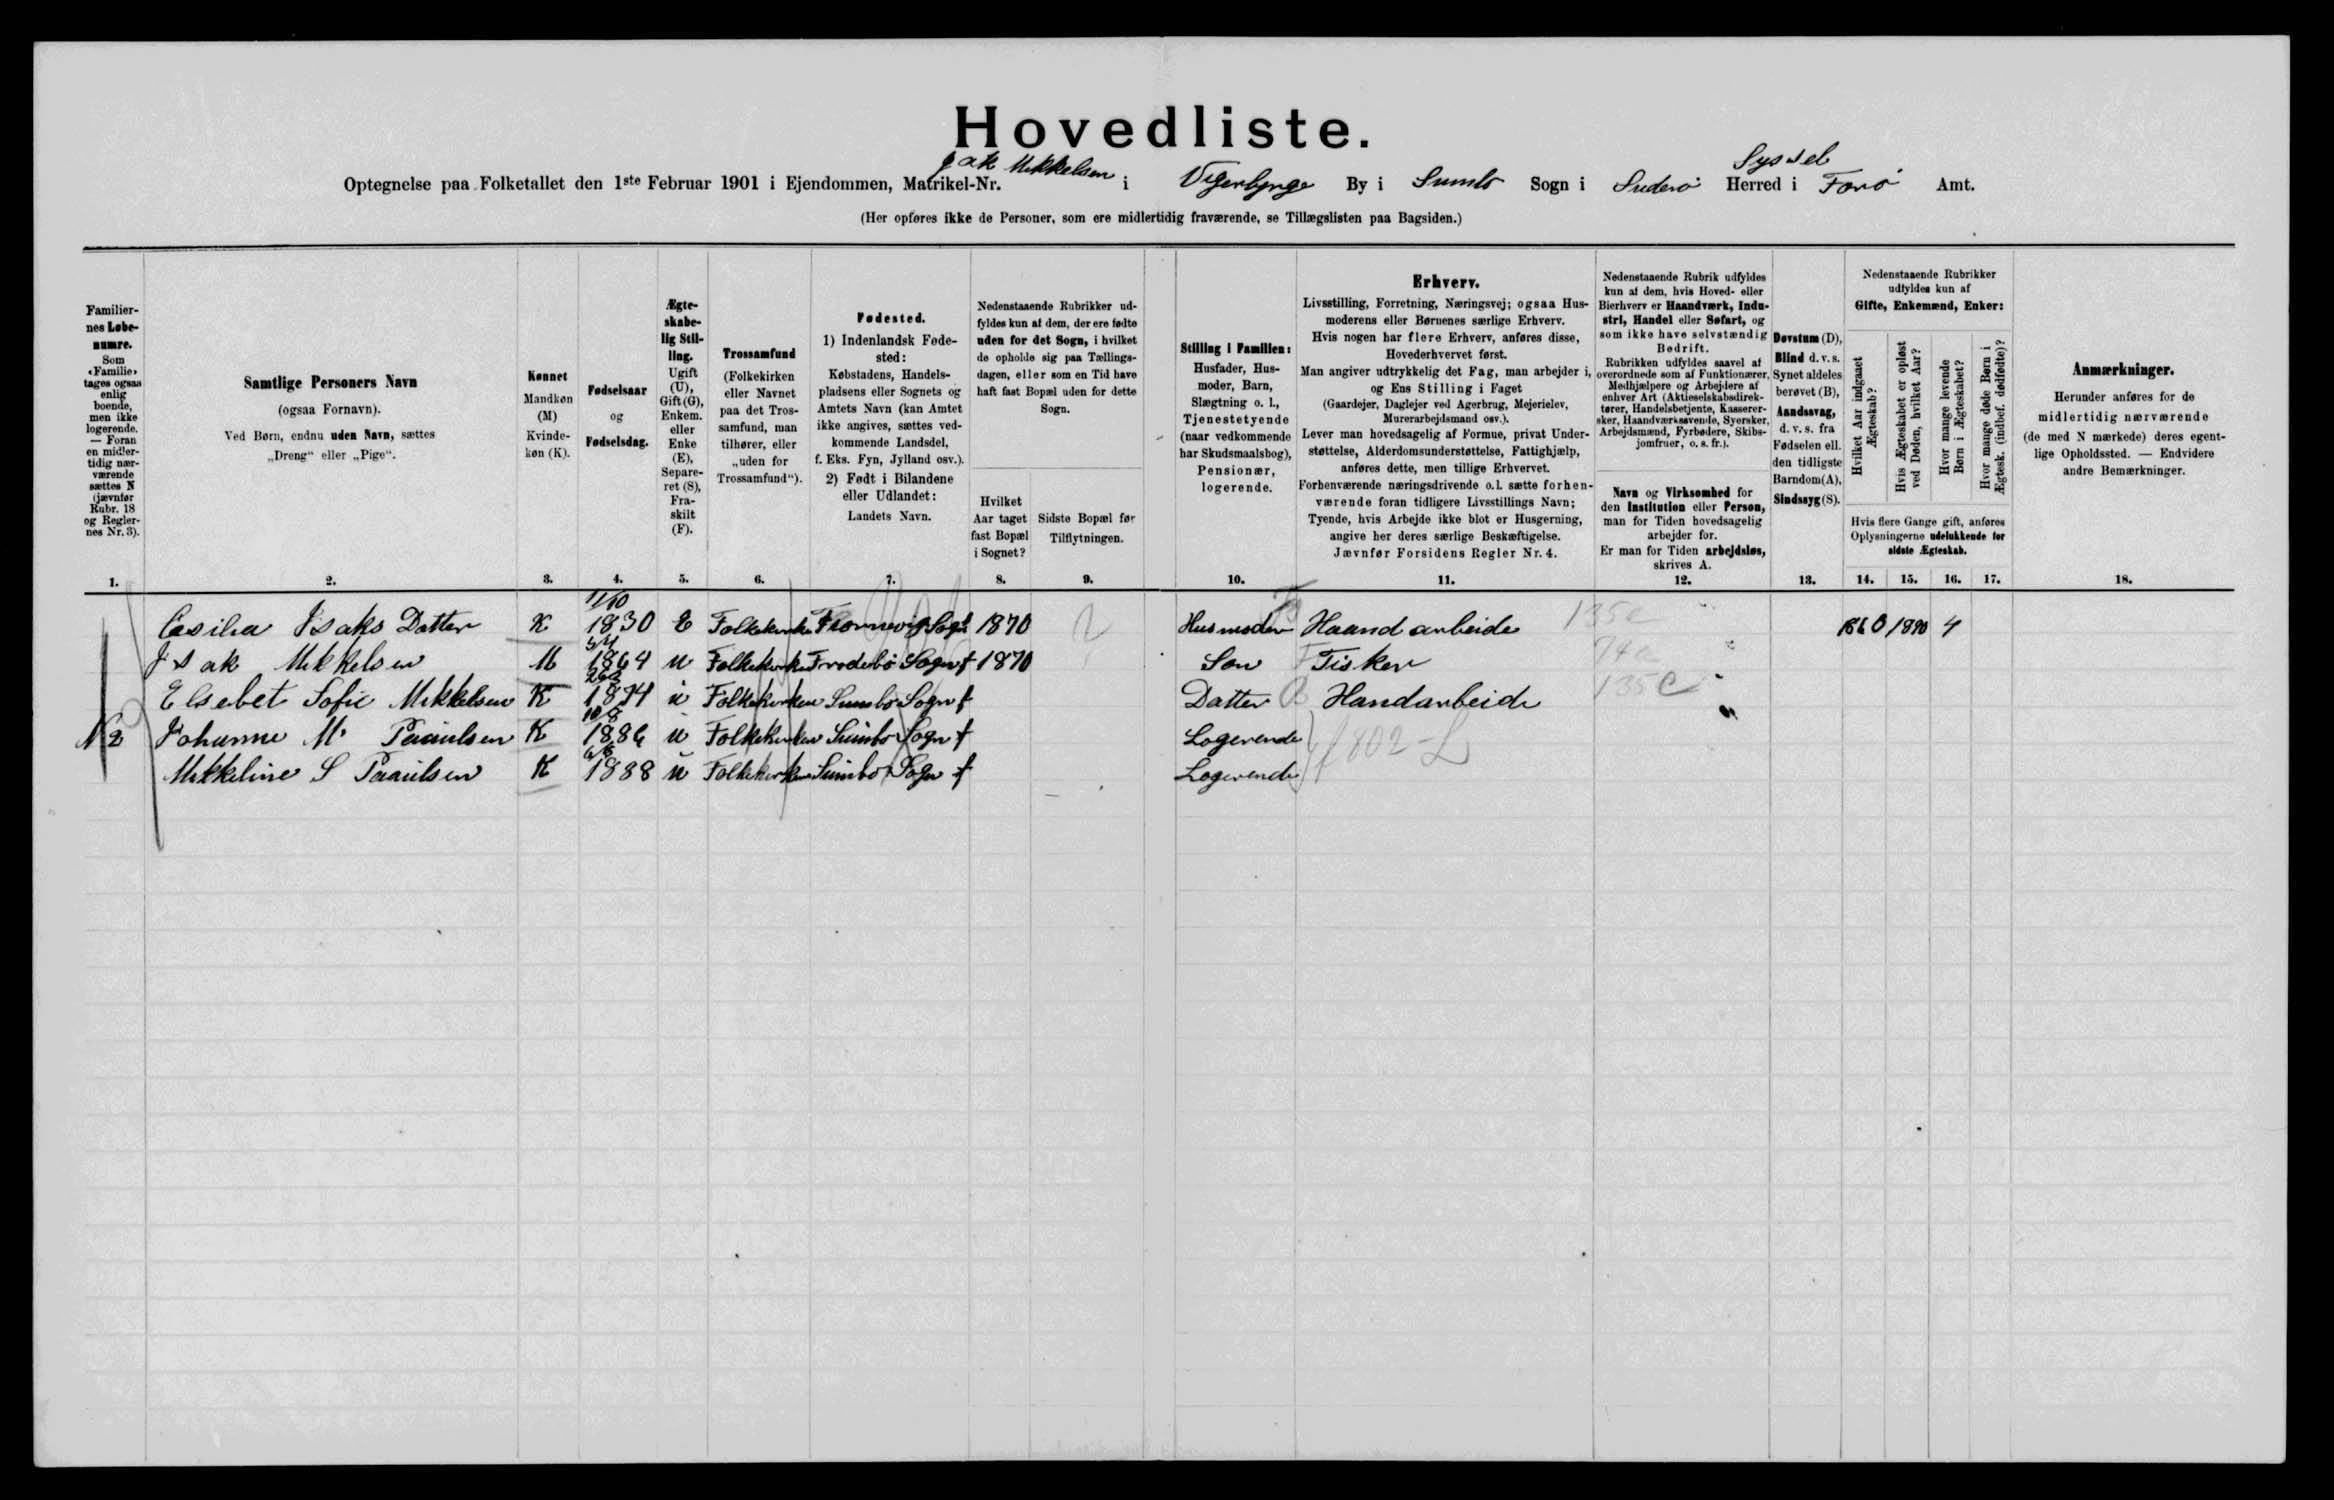 Hovedliste.
Optegnelse paa Folketallet den 1ste Februar 1901 i Ejendommen, Matrikel-Nr. Isak Mikkelsen i Vigerbyrge By i Sumbø Sogn i Suderø Syssel Herred i Færø Amt.
(Her opføres ikke de Personer, som ere midlertidig fraværende, se Tillægslisten paa Bagsiden.)
Familiernes Løbenumre.
Som «Familie» tages ogsaa enlig boende, men ikke logerende. — Foran en midlertidig nærværende sættes N (jævnfør Rubr. 18 og Reglernes Nr. 3).
Samtlige Personers Navn
(ogsaa Fornavn).
Ved Børn, endnu uden Navn, sættes
„Dreng“ eller „Pige“.
Kønnet
Mandkøn (M)
Kvindekøn (K).
Fødselsaar
og
Fødselsdag.
Ægteskabelig Stilling.
Ugift (U), Gift (G), Enkem. eller Enke (E), Separeret (S), Fraskilt (F).
Trossamfund
(Folkekirken eller Navnet paa det Trossamfund, man tilhører, eller „uden for Trossamfund“).
Fødested.
1) Indenlandsk Fødested:
Købstadens, Handelspladsens eller Sognets og Amtets Navn (kan Amtet ikke angives, sættes vedkommende Landsdel, f. Eks. Fyn, Jylland osv.).
2) Født i Bilandene eller Udlandet:
Landets Navn.
Nedenstaaende Rubrikker udfyldes kun af dem, der ere fødte uden for det Sogn, i hvilket de opholde sig paa Tællingsdagen, eller som en Tid have haft fast Bopæl uden for dette Sogn.
Hvilket Aar taget fast Bopæl i Sognet?
Sidste Bopæl før Tilflytningen.
Stilling i Familien:
Husfader, Husmoder, Barn, Slægtning o. l., Tjenestetyende (naar vedkommende har Skudsmaalsbog), Pensionær, logerende.
Erhverv.
Livsstilling, Forretning, Næringsvej; ogsaa Husmoderens eller Børnenes særlige Erhverv.
Hvis nogen har flere Erhverv, anføres disse, Hovederhvervet først.
Man angiver udtrykkelig det Fag, man arbejder i, og Ens Stilling i Faget
(Gaardejer, Daglejer ved Agerbrug, Mejerielev, Murerarbejdsmand osv.).
Lever man hovedsagelig af Formue, privat Understøttelse, Alderdomsunderstøttelse, Fattighjælp, anføres dette, men tillige Erhvervet.
Forhenværende næringsdrivende o. l. sætte forhenværende foran tidligere Livsstillings Navn;
Tyende, hvis Arbejde ikke blot er Husgerning, angive her deres særlige Beskæftigelse.
Jævnfør Forsidens Regler Nr. 4.
Nedenstaaende Rubrik udfyldes kun af dem, hvis Hoved- eller Bierhverv er Haandværk, Industri, Handel eller Søfart, og som ikke have selvstændig Bedrift.
Rubrikken udfyldes saavel af overordnede som af Funktionærer, Medhjælpere og Arbejdere af enhver Art (Aktieselskabsdirektører, Handelsbetjente, Kasserersker, Haandværkssvende, Syersker, Arbejdsmænd, Fyrbødere, Skibsjomfruer, o. s. fr.).
Navn og Virksomhed for den Institution eller Person, man for Tiden hovedsagelig arbejder for.
Er man for Tiden arbejdsløs, skrives A.
Døvstum (D), Blind d. v. s. Synet aldeles berøvet (B), Aandssvag, d. v. s. fra Fødselen ell. den tidligste Barndom (A), Sindssyg (S).
Nedenstaaende Rubrikker udfyldes kun af
Gifte, Enkemænd, Enker:
Hvilket Aar indgaaet Ægteskab?
Hvis Ægteskabet er opløst ved Døden, hvilket Aar?
Hvor mange levende Børn i Ægteskabet?
Hvor mange døde Børn i Ægtesk. (indbef. dødfødte)?
Hvis flere Gange gift, anføres Oplysningerne udelukkende for sidste Ægteskab.
Anmærkninger.
Herunder anføres for de midlertidig nærværende (de med N mærkede) deres egentlige Opholdssted. — Endvidere andre Bemærkninger.
1. 2. 3. 4. 5. 6. 7. 8. 9. 10. 11. 12. 13. 14. 15. 16. 17. 18.
Cesilia Isaks Datter K 1/10 1830 E Folkekirken Sogn 1870 Husmoder Haandarbeide 135c 1860 1890 4
Isak Mikkelsen M 1864 u Folkekirken Frodebø Sogn f 1870 Søn Fisker
Elsebet Sofie Mikkelsen K 1874 u Folkekirken Sumbø Sogn f Datter Handarbeide 135c
Johanne M. Paaulsen K 10/8 1886 u Folkekirken Sumbø Sogn f Logerende f802-L
Mikkeline S Paaulsen K 1888 u Folkekirken Sumbø Sogn f Logerende